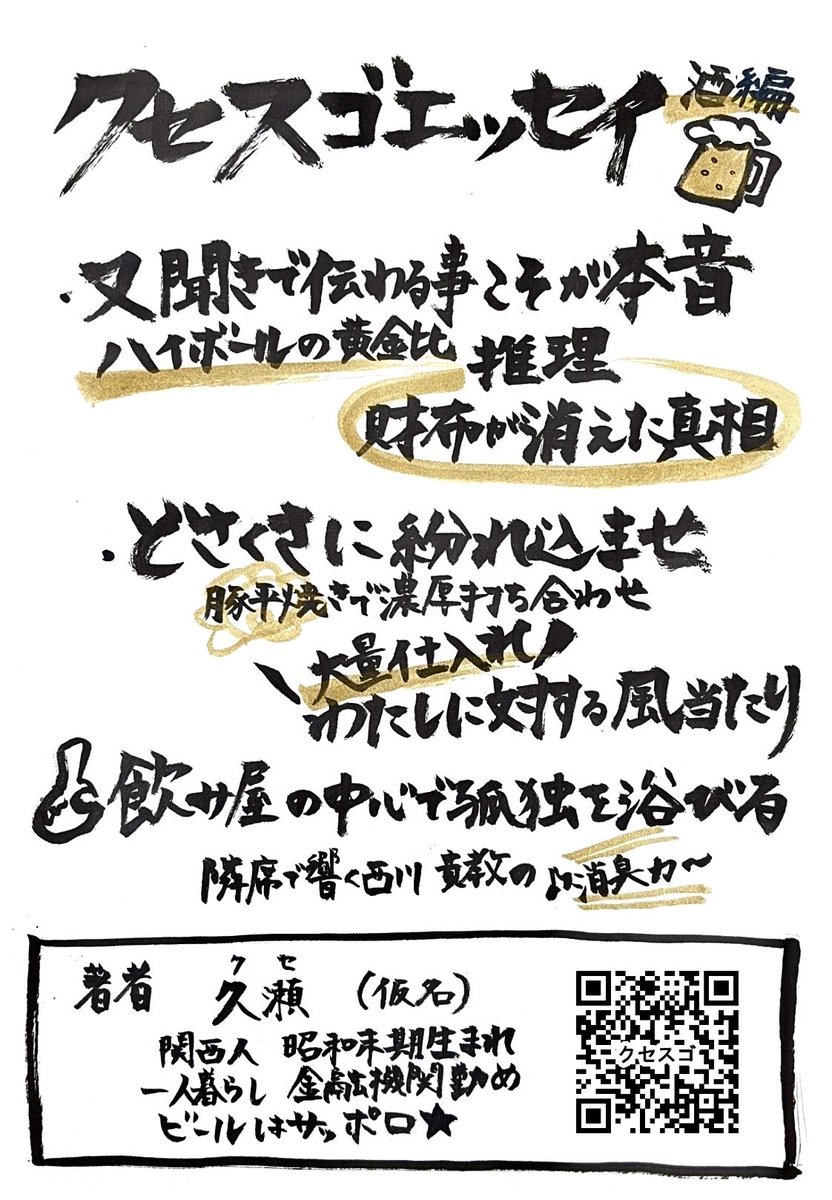 クセスゴエッセイ 酒編
・又聞きで伝わる事こそが本音
ハイボールの黄金比 推理
財布が消えた真相
・どさくさに紛れ込ませ
豚平焼きで濃厚打ち合わせ
\大量仕入れ/
わたしに対する風当たり
飲み屋の中心で孤独を浴びる
隣席で響く西川貴教の♪消臭力〜
クセ
著者 久瀬 (仮名)
関西人 昭和末期生まれ
一人暮らし 金融機関勤め
ビールはサッポロ★
クセスゴ